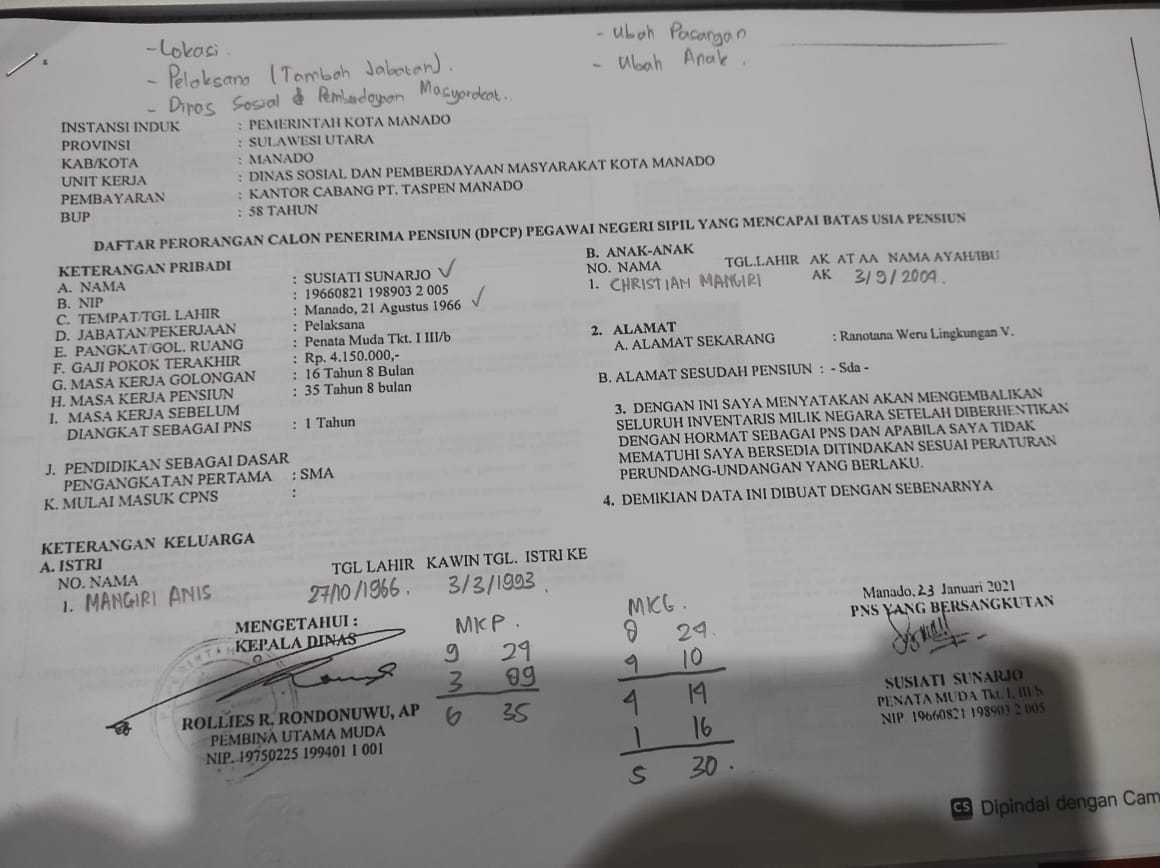 - Lokasi.
- Pelaksana (Tambah Jabatan).
- Dinas Sosial & Pemberdayaan Masyarakat..
- Ubah Pasangan
- Ubah Anak.
INSTANSI INDUK : PEMERINTAH KOTA MANADO
PROVINSI : SULAWESI UTARA
KAB/KOTA : MANADO
UNIT KERJA : DINAS SOSIAL DAN PEMBERDAYAAN MASYARAKAT KOTA MANADO
PEMBAYARAN : KANTOR CABANG PT. TASPEN MANADO
BUP : 58 TAHUN
DAFTAR PERORANGAN CALON PENERIMA PENSIUN (DPCP) PEGAWAI NEGERI SIPIL YANG MENCAPAI BATAS USIA PENSIUN
KETERANGAN PRIBADI
A. NAMA : SUSIATI SUNARJO
B. NIP : 19660821 198903 2 005
C. TEMPAT/TGL LAHIR : Manado, 21 Agustus 1966
D. JABATAN/PEKERJAAN : Pelaksana
E. PANGKAT/GOL. RUANG : Penata Muda Tkt. I III/b
F. GAJI POKOK TERAKHIR : Rp. 4.150.000,-
G. MASA KERJA GOLONGAN : 16 Tahun 8 Bulan
H. MASA KERJA PENSIUN : 35 Tahun 8 bulan
I. MASA KERJA SEBELUM
DIANGKAT SEBAGAI PNS : 1 Tahun
J. PENDIDIKAN SEBAGAI DASAR
PENGANGKATAN PERTAMA : SMA
K. MULAI MASUK CPNS :
B. ANAK-ANAK
NO. NAMA TGL.LAHIR AK AT AA NAMA AYAH/IBU
1. CHRISTIAN MANGIRI AK 3/9/2009.
2. ALAMAT
A. ALAMAT SEKARANG : Ranotana Weru Lingkungan V.
B. ALAMAT SESUDAH PENSIUN : - Sda -
3. DENGAN INI SAYA MENYATAKAN AKAN MENGEMBALIKAN
SELURUH INVENTARIS MILIK NEGARA SETELAH DIBERHENTIKAN
DENGAN HORMAT SEBAGAI PNS DAN APABILA SAYA TIDAK
MEMATUHI SAYA BERSEDIA DITINDAKAN SESUAI PERATURAN
PERUNDANG-UNDANGAN YANG BERLAKU.
4. DEMIKIAN DATA INI DIBUAT DENGAN SEBENARNYA
KETERANGAN KELUARGA
A. ISTRI
NO. NAMA TGL LAHIR KAWIN TGL. ISTRI KE
1. MANGIRI ANIS 27/10/1966. 3/3/1993.
MENGETAHUI :
KEPALA DINAS
ROLLIES R. RONDONUWU, AP
PEMBINA UTAMA MUDA
NIP. 19750225 199401 1 001
MKP.
9 29
3 09
6 35
MKG.
8 29.
9 10
4 19
1 16
5 30.
Manado, 23 Januari 2021
PNS YANG BERSANGKUTAN
SUSIATI SUNARJO
PENATA MUDA Tkt. I,
NIP 19660821 198903 2 005
CS Dipindai dengan Cam